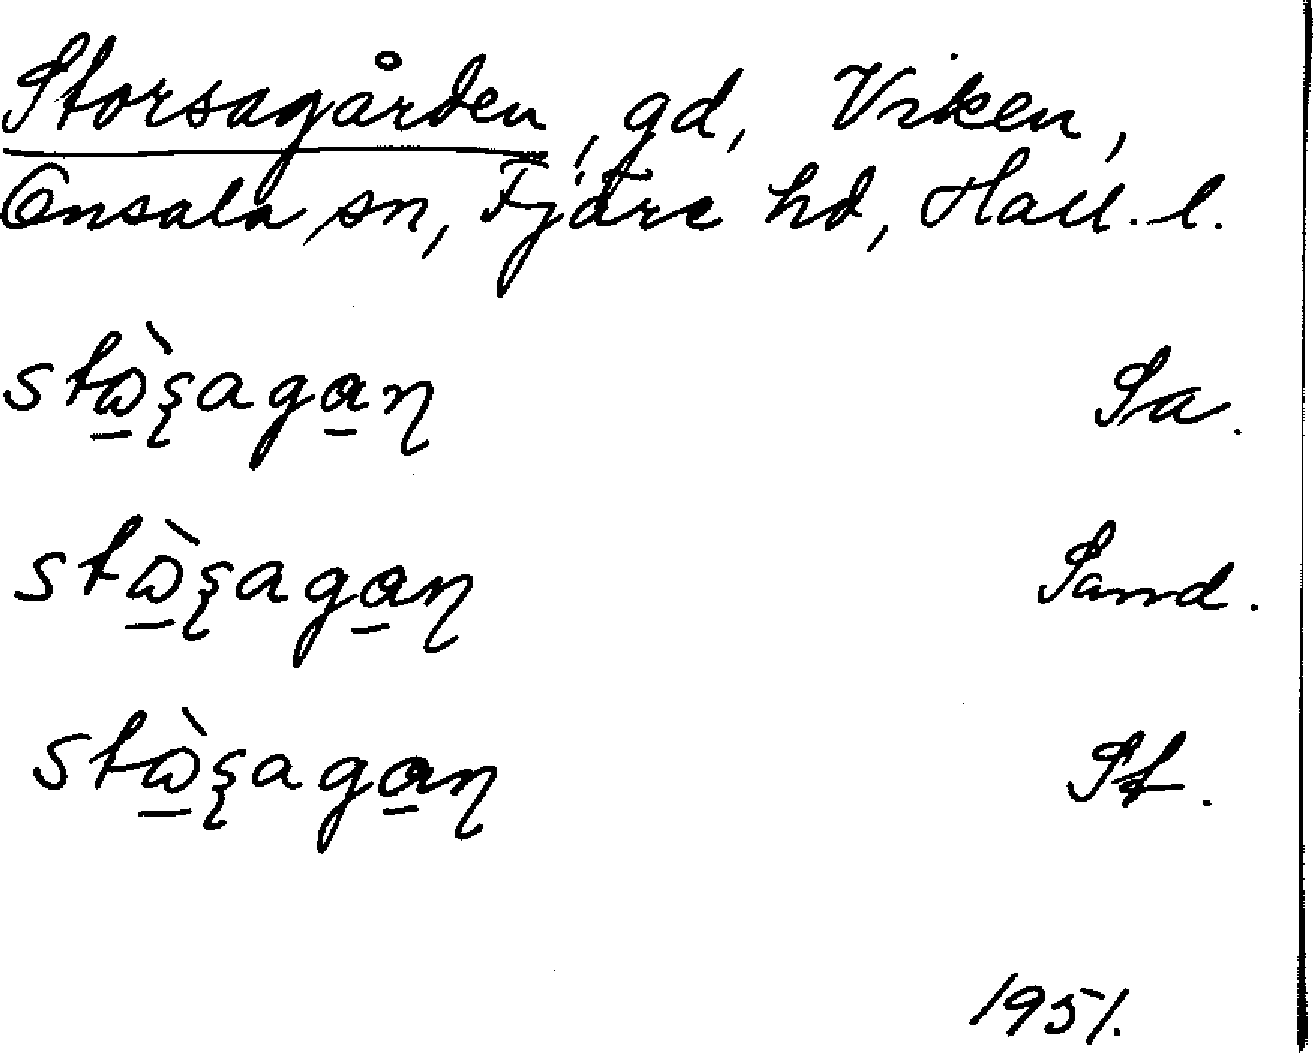 Storsagården, gd, Viken,
Onsala sn, Fjäre hd, Hall. l.
stὼ̲ʂaga̲ɳ Sa.
stὼ̲ʂaga̲ɳ Sand.
stὼ̲ʂaga̲ɳ St.
1951.